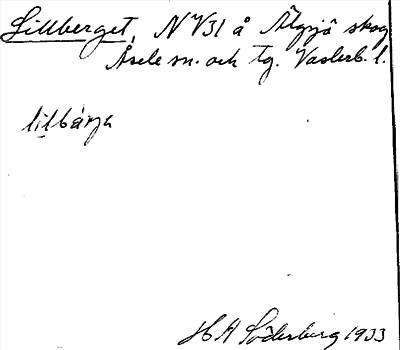 Lillberget, NV31 å Älgsjö skog
Åsele sn. och tg. Vasterb. l.
lilbárja
H A Söderberg 1933